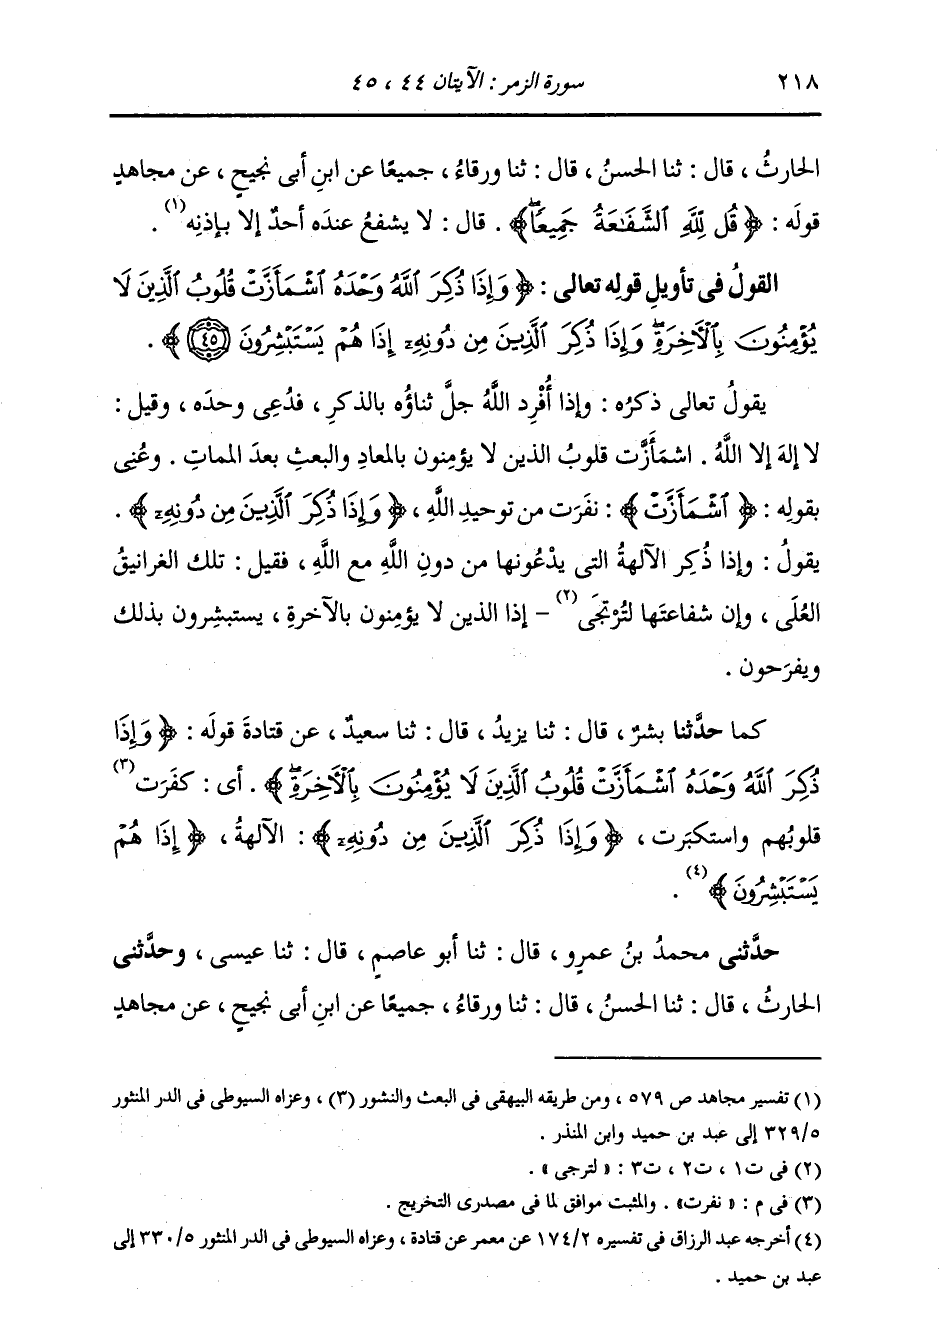 ٢١٨ سورة الزمر : الآيتان ٤٤ ، ٤٥
الحارثُ ، قال : ثنا الحسنُ ، قال : ثنا ورقاءُ ، جميعًا عن ابنِ أبى نجيحٍ ، عن مجاهدٍ
قولَه : ﴿ قُل لِّلَّهِ ٱلشَّفَٰعَةُ جَمِيعًاۖ ﴾ . قال : لا يشفعُ عندَه أحدٌ إلا بإذنِه (١) .
القولُ فى تأويلِ قولِه تعالى : ﴿ وَإِذَا ذُكِرَ ٱللَّهُ وَحْدَهُ ٱشْمَأَزَّتْ قُلُوبُ ٱلَّذِينَ لَا
يُؤْمِنُونَ بِٱلْأَخِرَةِۖ وَإِذَا ذُكِرَ ٱلَّذِينَ مِن دُونِهِۦ إِذَا هُمْ يَسْتَبْشِرُونَ ٤٥ ﴾ .
يقولُ تعالى ذكرُه : وإذا أُفْرِد اللَّهُ جلَّ ثناؤُه بالذكرِ ، فدُعِى وحدَه ، وقيل :
لا إلهَ إلا اللَّهُ . اشمَأَزَّت قلوبُ الذين لا يؤمِنون بالمعادِ والبعثِ بعدَ المماتِ . وعُنِى
بقولِه : ﴿ ٱشْمَأَزَّتْ ﴾ : نفَرَت من توحيدِ اللَّهِ ، ﴿ وَإِذَا ذُكِرَ ٱلَّذِينَ مِن دُونِهِۦ ﴾ .
يقولُ : وإذا ذُكِر الآلهةُ التى يدْعُونها من دونِ اللَّهِ مع اللَّهِ ، فقيل : تلك الغرانيقُ
العُلَى ، وإن شفاعتَها لتُرْتَجَى (٢) – إذا الذين لا يؤمِنون بالآخرةِ ، يستبشِرون بذلك
ويفرَحون .
كما حدَّثنا بشرٌ ، قال : ثنا يزيدُ ، قال : ثنا سعيدٌ ، عن قتادةَ قولَه : ﴿ وَإِذَا
ذُكِرَ ٱللَّهُ وَحْدَهُ ٱشْمَأَزَّتْ قُلُوبُ ٱلَّذِينَ لَا يُؤْمِنُونَ بِٱلْأَخِرَةِۖ ﴾ . أى : كفَرَت (٣)
قلوبُهم واستكبَرت ، ﴿ وَإِذَا ذُكِرَ ٱلَّذِينَ مِن دُونِهِۦ ﴾ : الآلهةُ ، ﴿ إِذَا هُمْ
يَسْتَبْشِرُونَ ﴾ (٤) .
حدَّثنى محمدُ بنُ عمرٍو ، قال : ثنا أبو عاصمٍ ، قال : ثنا عيسى ، وحدَّثنى
الحارثُ ، قال : ثنا الحسنُ ، قال : ثنا ورقاءُ ، جميعًا عن ابنِ أبى نجيحٍ ، عن مجاهدٍ
(١) تفسير مجاهد ص ٥٧٩ ، ومن طريقه البيهقى فى البعث والنشور (٣) ، وعزاه السيوطى فى الدر المنثور
٣٢٩/٥ إلى عبد بن حميد وابن المنذر .
(٢) فى ت١ ، ت٢ ، ت٣ : « لترجى » .
(٣) فى م : « نفرت» . والمثبت موافق لما فى مصدرى التخريج .
(٤) أخرجه عبد الرزاق فى تفسيره ١٧٤/٢ عن معمر عن قتادة ، وعزاه السيوطى فى الدر المنثور ٣٣٠/٥ إلى
عبد بن حميد .